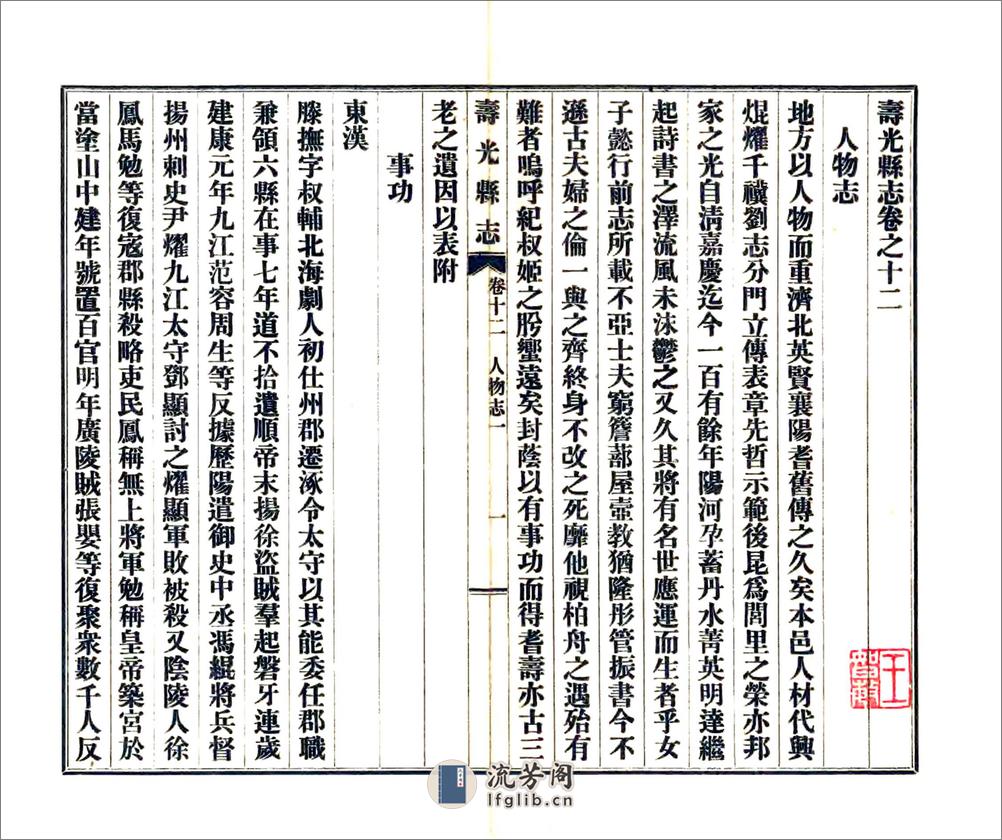 壽光縣志卷之十二
人物志
地方以人物而重濟北英賢襄陽耆舊傳之久矣本邑人材代興
焜燿千禩劉志分門立傳表章先哲示範後昆爲閭里之榮亦邦
家之光自淸嘉慶迄今一百有餘年陽河孕蓄丹水菁英明達繼
起詩書之澤流風未沬鬱之又久其將有名世應運而生者乎女
子懿行前志所載不亞士夫窮簷蔀屋壺教猶隆彤管振書今不
遜古夫婦之倫一與之齊終身不改之死靡他視柏舟之遇殆有
難者嗚呼紀叔姬之肹蠁遠矣封蔭以有事功而得耆壽亦古三
壽光縣志
卷十二
人物志一
一
老之遺因以表附
事功
東漢
滕撫字叔輔北海劇人初仕州郡遷涿令太守以其能委任郡職
兼領六縣在事七年道不拾遺順帝末揚徐盜賊羣起磐牙連歲
建康元年九江范容周生等反據歷陽遣御史中丞馮緄將兵督
揚州刺史尹燿九江太守鄧顯討之燿顯軍敗被殺又陰陵人徐
鳳馬勉等復寇郡縣殺略吏民鳳稱無上將軍勉稱皇帝築宮於
當塗山中建年號置百官明年廣陵賊張嬰等復聚衆數千人反
流芳阁
lfglib.cn